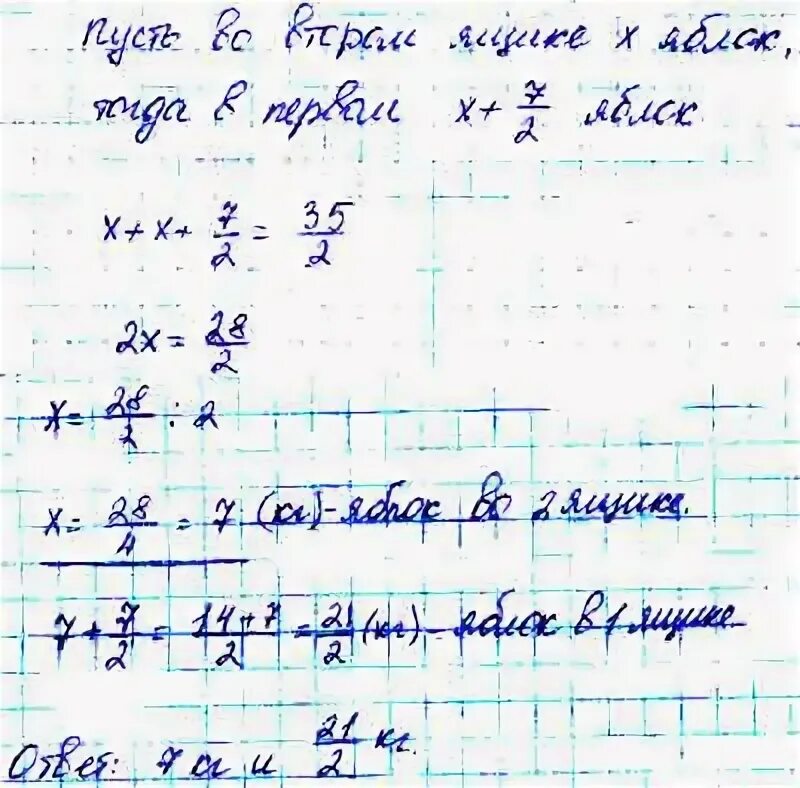 Пусть во втором ящике x яблок,
тогда в первом x + 7/2 яблок
x + x + 7/2 = 35/2
2x = 28/2
x = 28/2 : 2
x = 28/4 = 7 (кг) - яблок во 2 ящике.
7 + 7/2 = 14+7/2 = 21/2 (кг) - яблок в 1 ящике
Ответ: 7 кг и 21/2 кг.